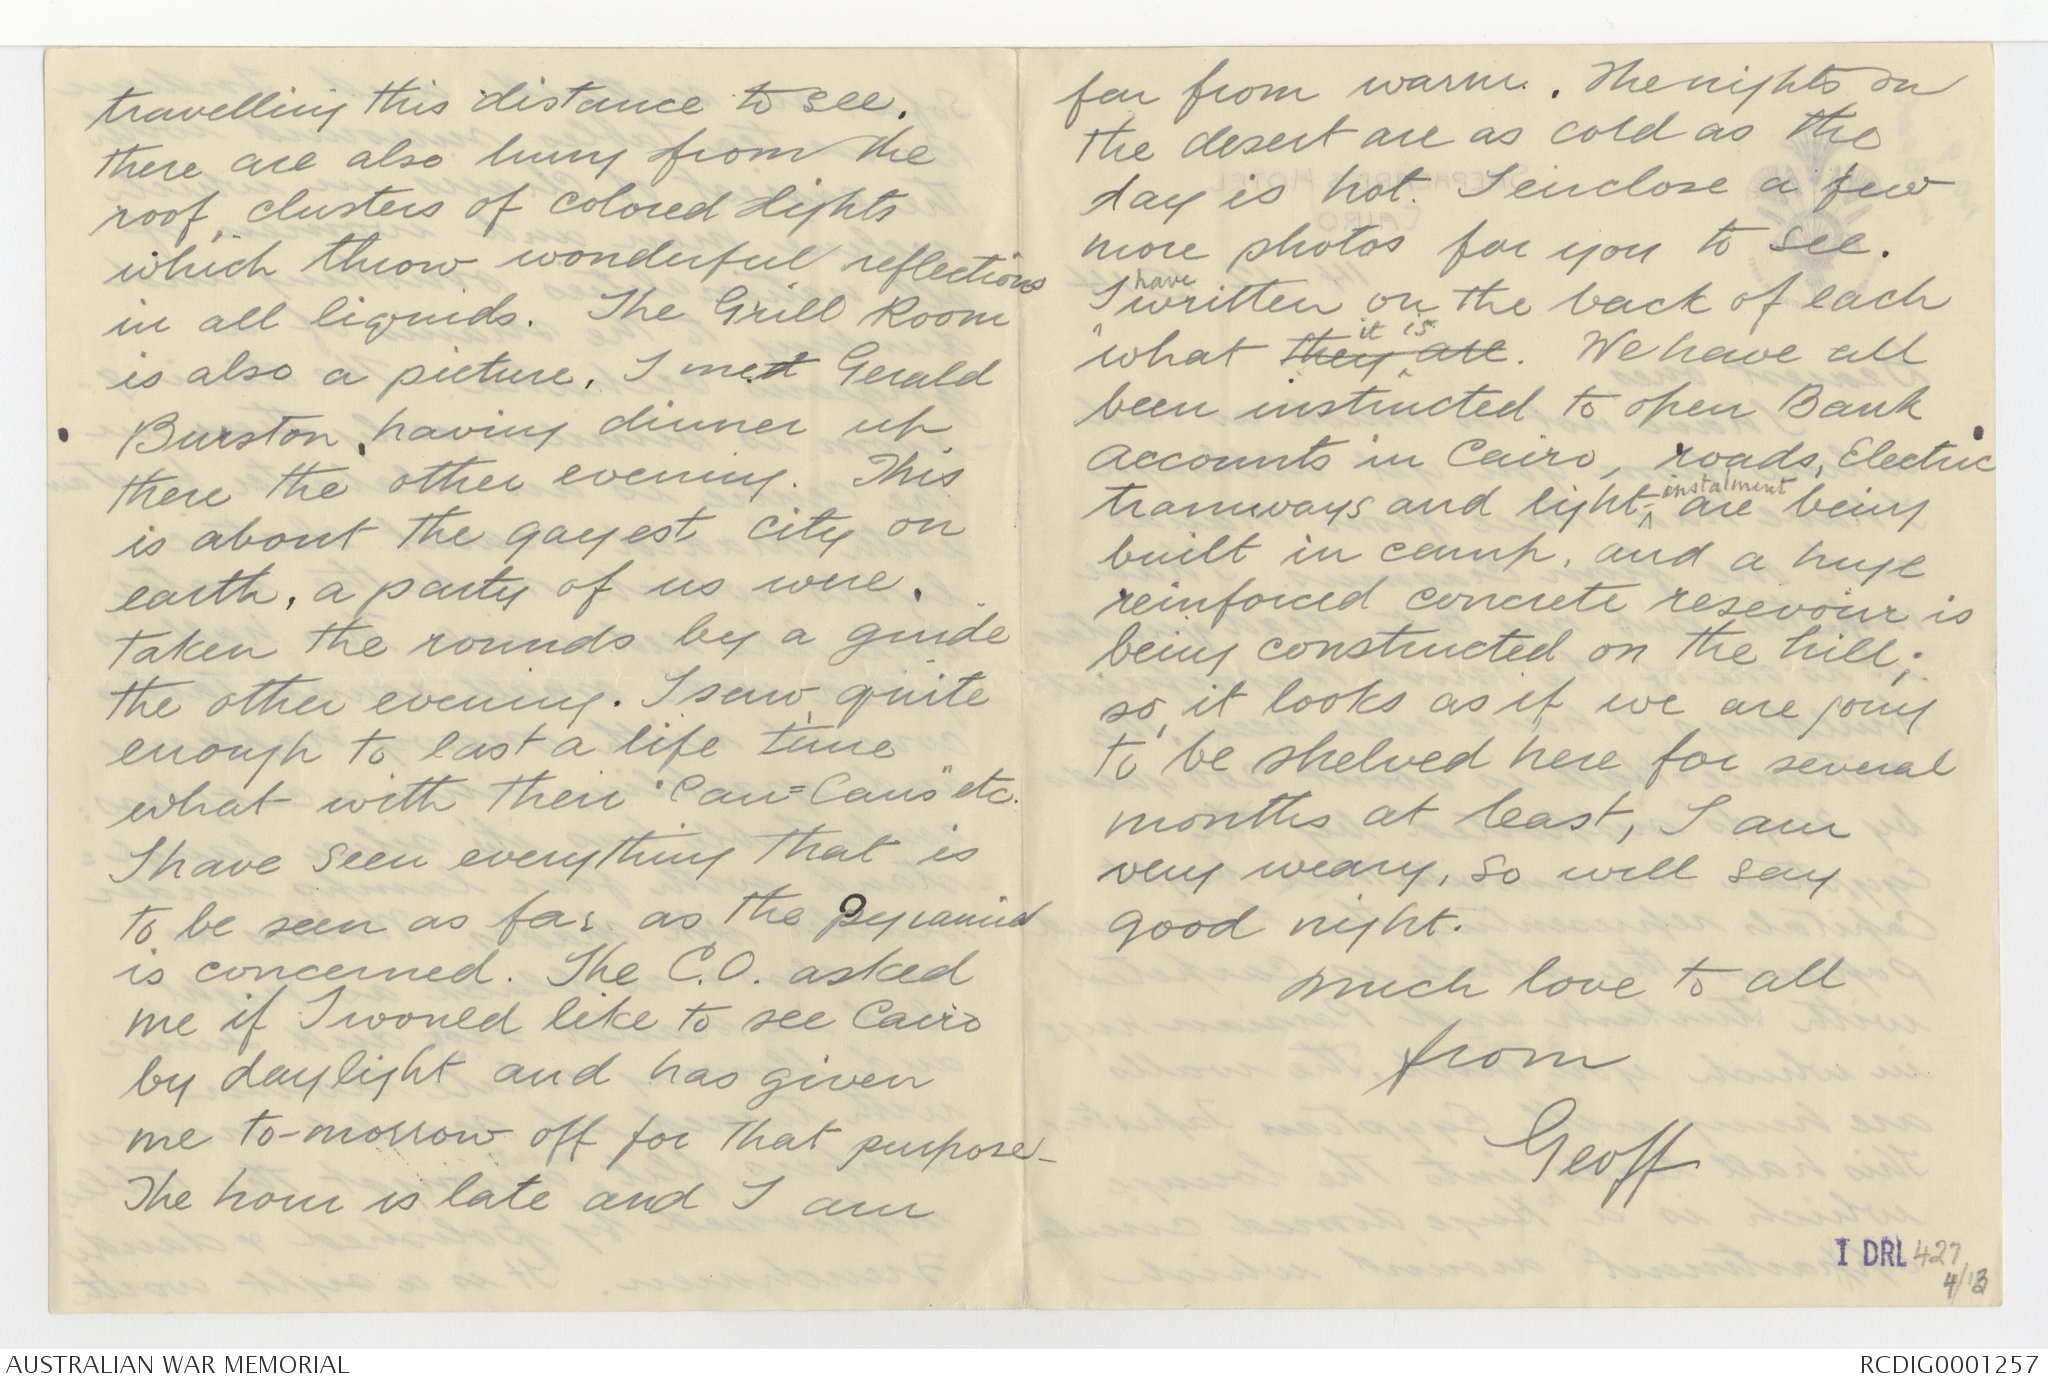 travelling this distance to see.
there are also hung from the
roof, clusters of colored lights
which throw wonderful reflections
in all liquids. The Grill Room
is also a picture. I met Gerald
Burston, having dinner up
there the other evening. This
is about the gayest city on
earth, a party of us were.
taken the rounds by a guide
the other evening. I saw quite
enough to last a life time
what with their "Can=Cans" etc.
I have seen everything that is
to be seen as far as the pyramid
is concerned. The C.O. asked
me if I would like to see Cairo
by daylight and has given
me to-morrow off for that purpose-
The hour is late and I am
far from warm.. The nights on
the desert are as cold as the
day is hot. I enclose a few
more photos for you to see.
I have written on the back of each
what they are it is. We have all
been instructed to open Bank
accounts in Cairo, roads, Electric
tramways and light-instalment are being
built in camp, and a huge
reinforced concrete resevoir is
being constructed on the hill;
so, it looks as if we are going
to be shelved here for several
months at least, I am
very weary, so will say
good night.
much love to all
from
Geoff
I DRL 427
4/13
AUSTRALIAN WAR MEMORIAL
RCDIG0001257